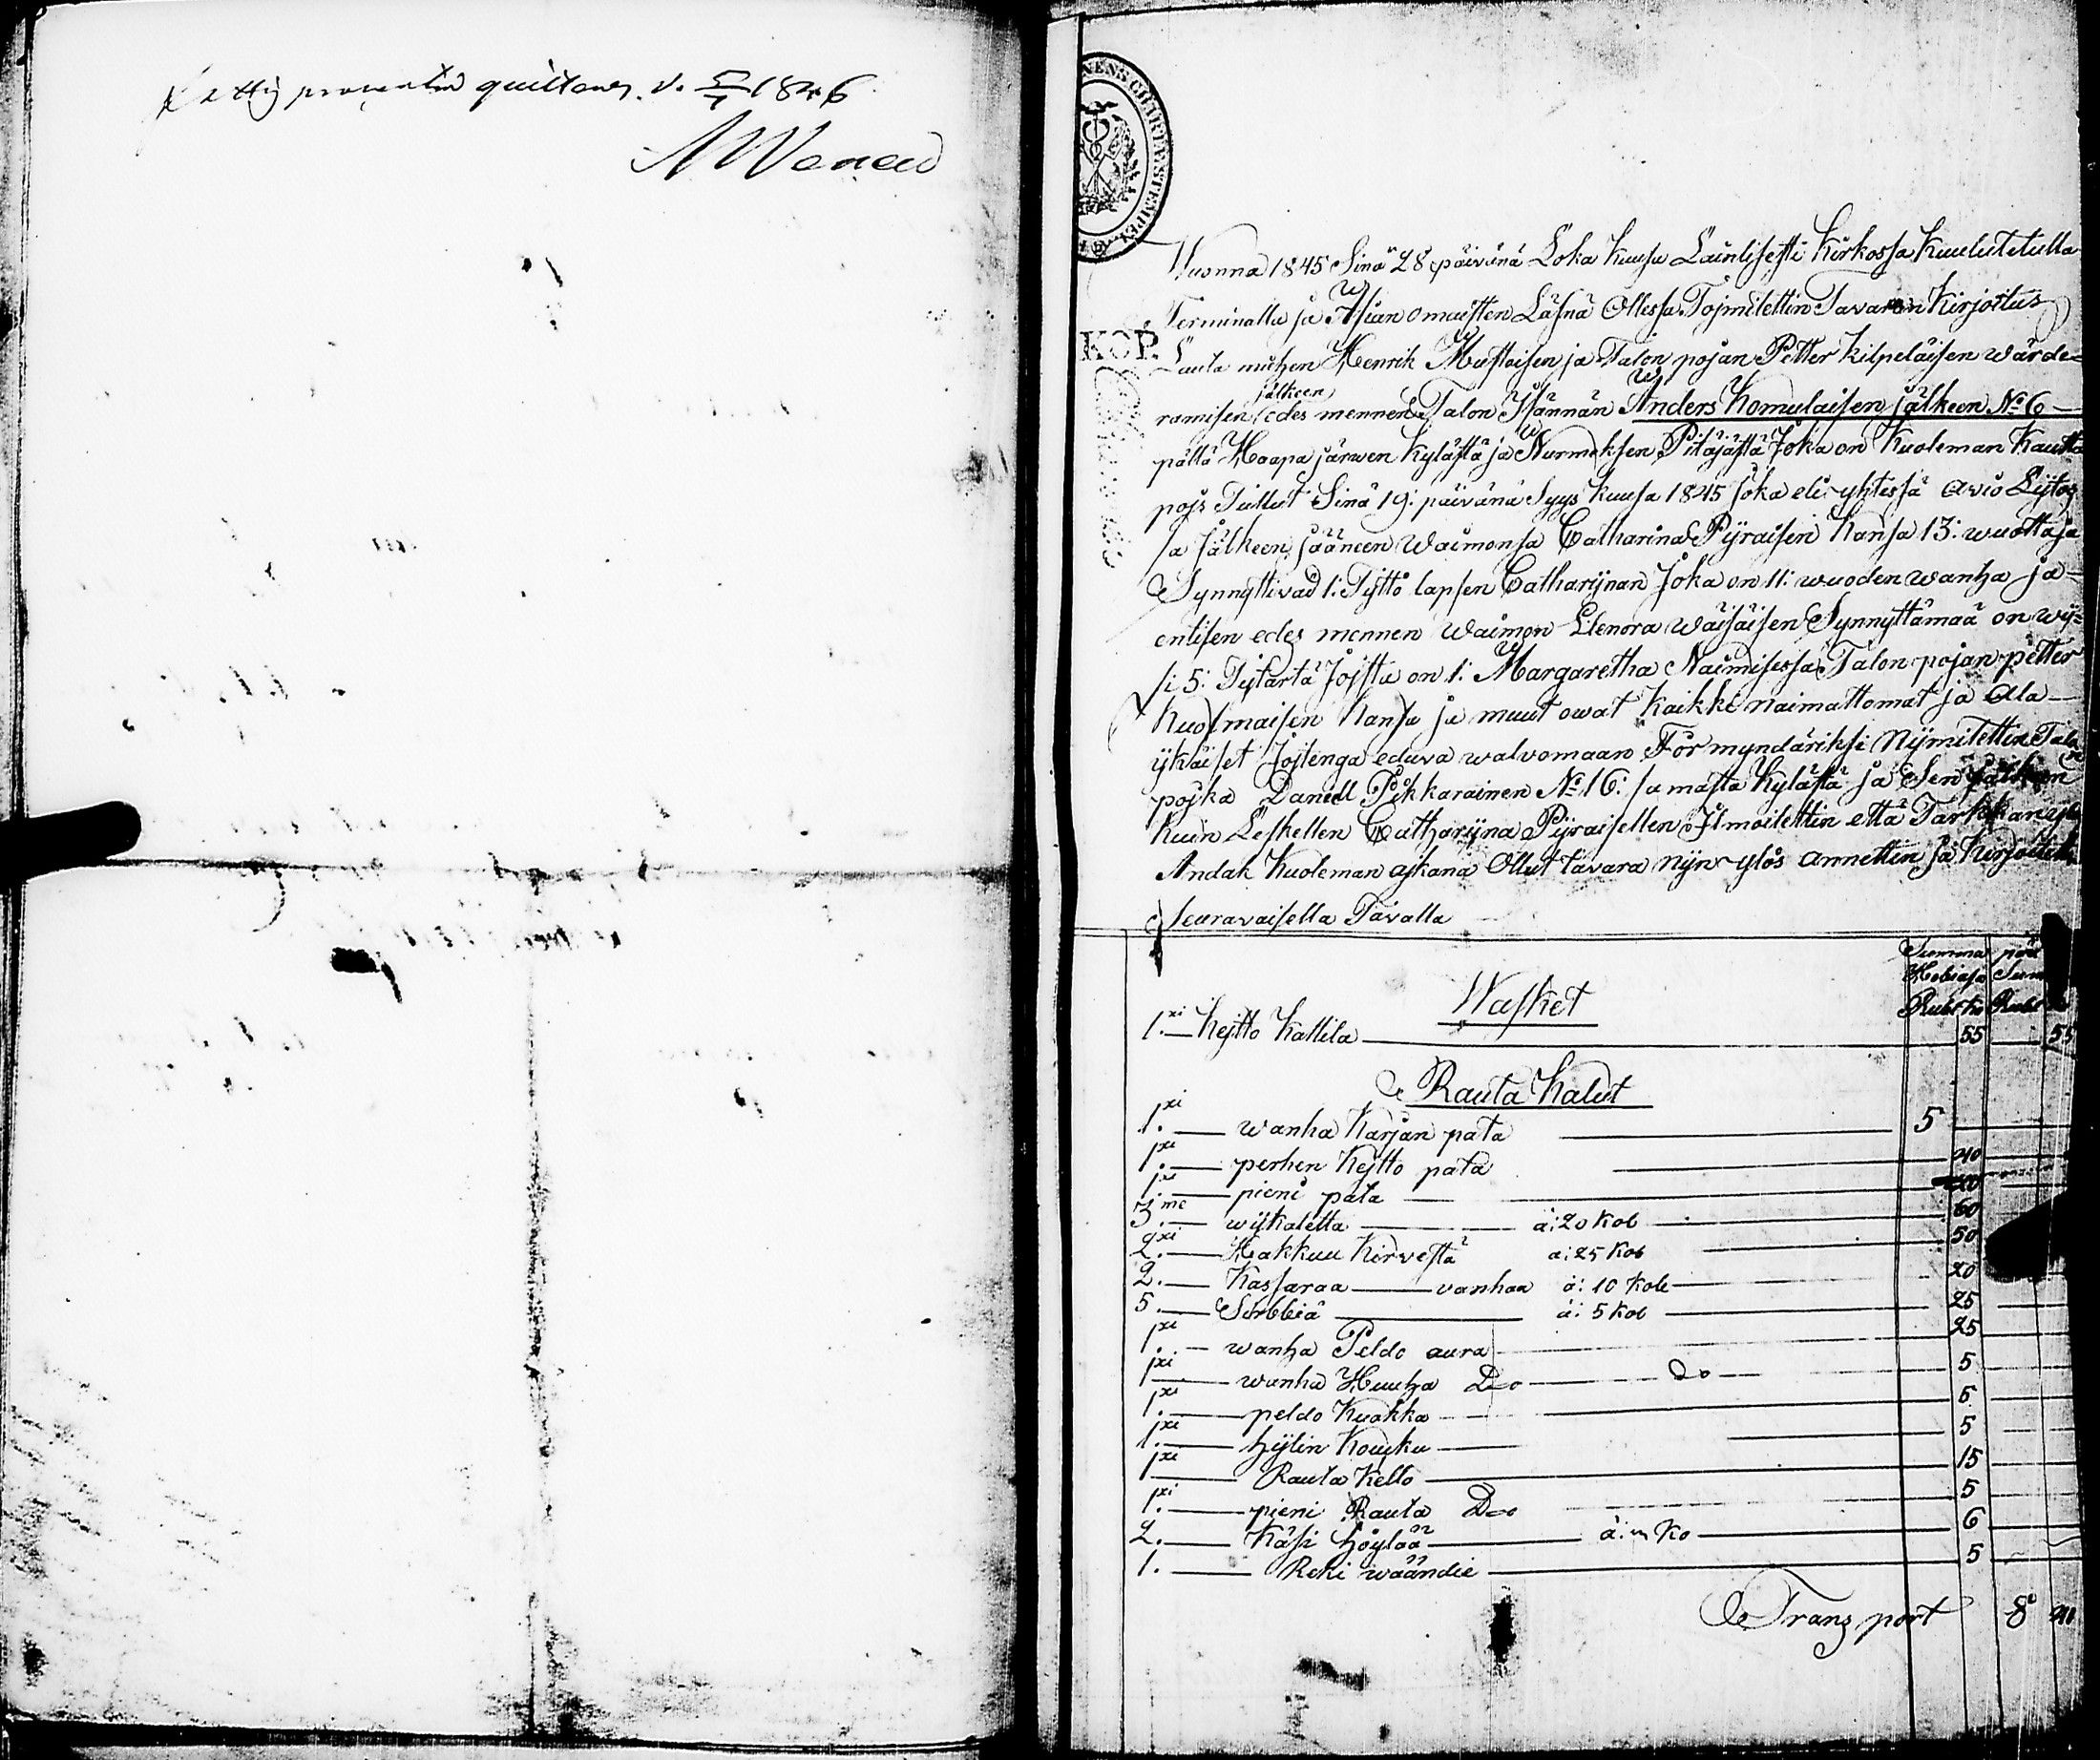 quittens. d. 5/5 1846
Vuonna 1845 Sinä 28 päivänä Loka Kuusa Lainlisesti Kirkossa Kuulutetulla
Terminalla ja Asian omaisten Läsnä Ollessa Tojmitettin Tavaran Kirjoitus
KOP.
Lauta miehen Henrik Mustoisen ja Talon pojan Petter Kilpeläisen wärde=
jälkeen
ramisen edes mennen Talon Isännän Anders Komulaisen jälkeen No 6
pältä Haapa järwen Kylästä ja Nurmeksen Pitäjästä Joka on Kuoleman Kautta
pojs Tullut Sinä 19: päivänä Syys Kuusa 1845 joka eli yhtessä avio Lijtos
sa Jälkeen jääneen Waimonsa Catharina Pyraisen Kansa 13: wuotta ja
Synnyttivad 1: Tyttö lapsen Catharijnan Joka on 11: wuoden wanha ja
entisen edes mennen Waimon Elenora wäisäisen Synnyttämää on wij=
si 5: Tytärtä Joista on 1: Margaretha Naimisessa Talon pojan petter
Kuosmaisen Kansa ja muut owat Kaikki naimattomat ja ala
ijkäiset Jojtenga eduva walvomaan Förmyndäriksi Nijmitettin Talon
pojka Daniell Pikkarainen No 16: samasta Kylästä ja Sen jälkeen
Kuin Leskellen Catharijna Pyraisellen Ilmoitettin että Tarkka
Andak Kuoleman ajkana Ollut tavara nijn ylös annettin ja Kirjoitetti
Seuravaisella Tavalla
Summa
Hobiasa
Rubl ko Rubl
Wasket
1. xi Kejtto Kattila 55 55
Rauta Kalut
1. xi wanha Karjan pata 5
1. xi perhen Kejtto pata 40
1. xi pieni pata
3. me wijkatetta à: 20 Kob 60
2. xi Hakkuu Kirvestä a: 25 Kob 50
2. Kassaraa vanhaa à: 10 Kob 20
5. Sirbbiä à: 5 Kob 25
1. xi wanha Peldo aura 25
1 xi wanha Huuha Do Do 5
1. xi peldo Kuokka 5
1. xi hijlin Koucku 5
1 xi Rauta Kello 15
1. xi pieni Rauta Do 5
2. Käsi höylää 6
1. Reki wäändie 5
Transport 8